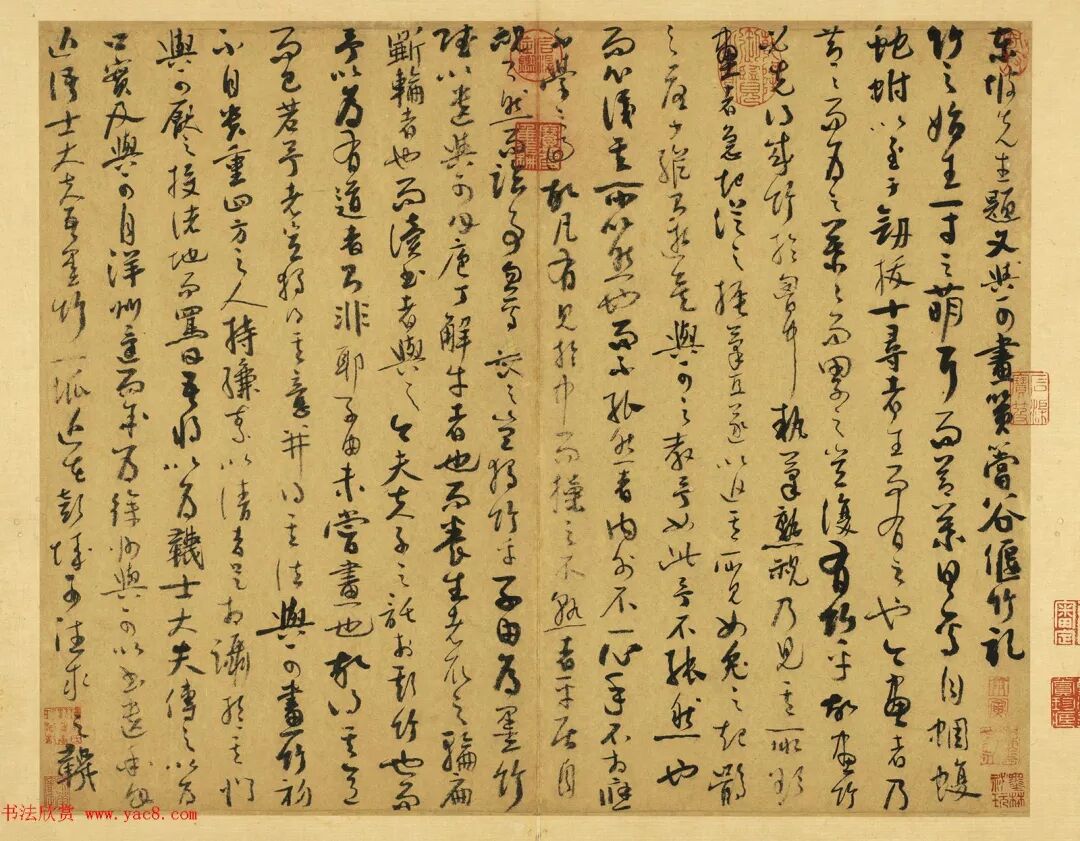 東坡先生題文與可畫篔簹谷偃竹記
竹之始生一寸之萌耳而節葉具焉自蜩蝮
蛇蚹以至于劒拔十尋者生而有之也今畫者乃
節節而為之葉葉而累之豈復有竹乎故畫竹
必先得成竹於胸中執筆熟視乃見其所欲
畫者急起從之振筆直遂以追其所見如兔之起鶻
之落少縱則逝矣與可之教予如此予不能然也
而心識其所以然也而不能然者內外不一心手不相應
不學之過也故凡有見於中而操之不熟者平居自
視了然而臨事忽焉喪之豈獨竹乎子由為墨竹
賦以遺與可曰庖丁解牛者也而養生者取之輪扁
斲輪者也而讀書者與之今夫夫子之託於斯竹也而
予以為有道者則非耶子由未嘗畫也故得其意
而已若予者豈獨得其意并得其法與可畫竹初
不自貴重四方之人持縑素以請者足相躡於其門
與可厭之投諸地而罵曰吾將以為韈士大夫傳之以為
口實及與可自洋州還而余為徐州與可以書遺余曰
近語士大夫吾墨竹一派近在彭城可往求之韈
书法欣赏 www.yac8.com